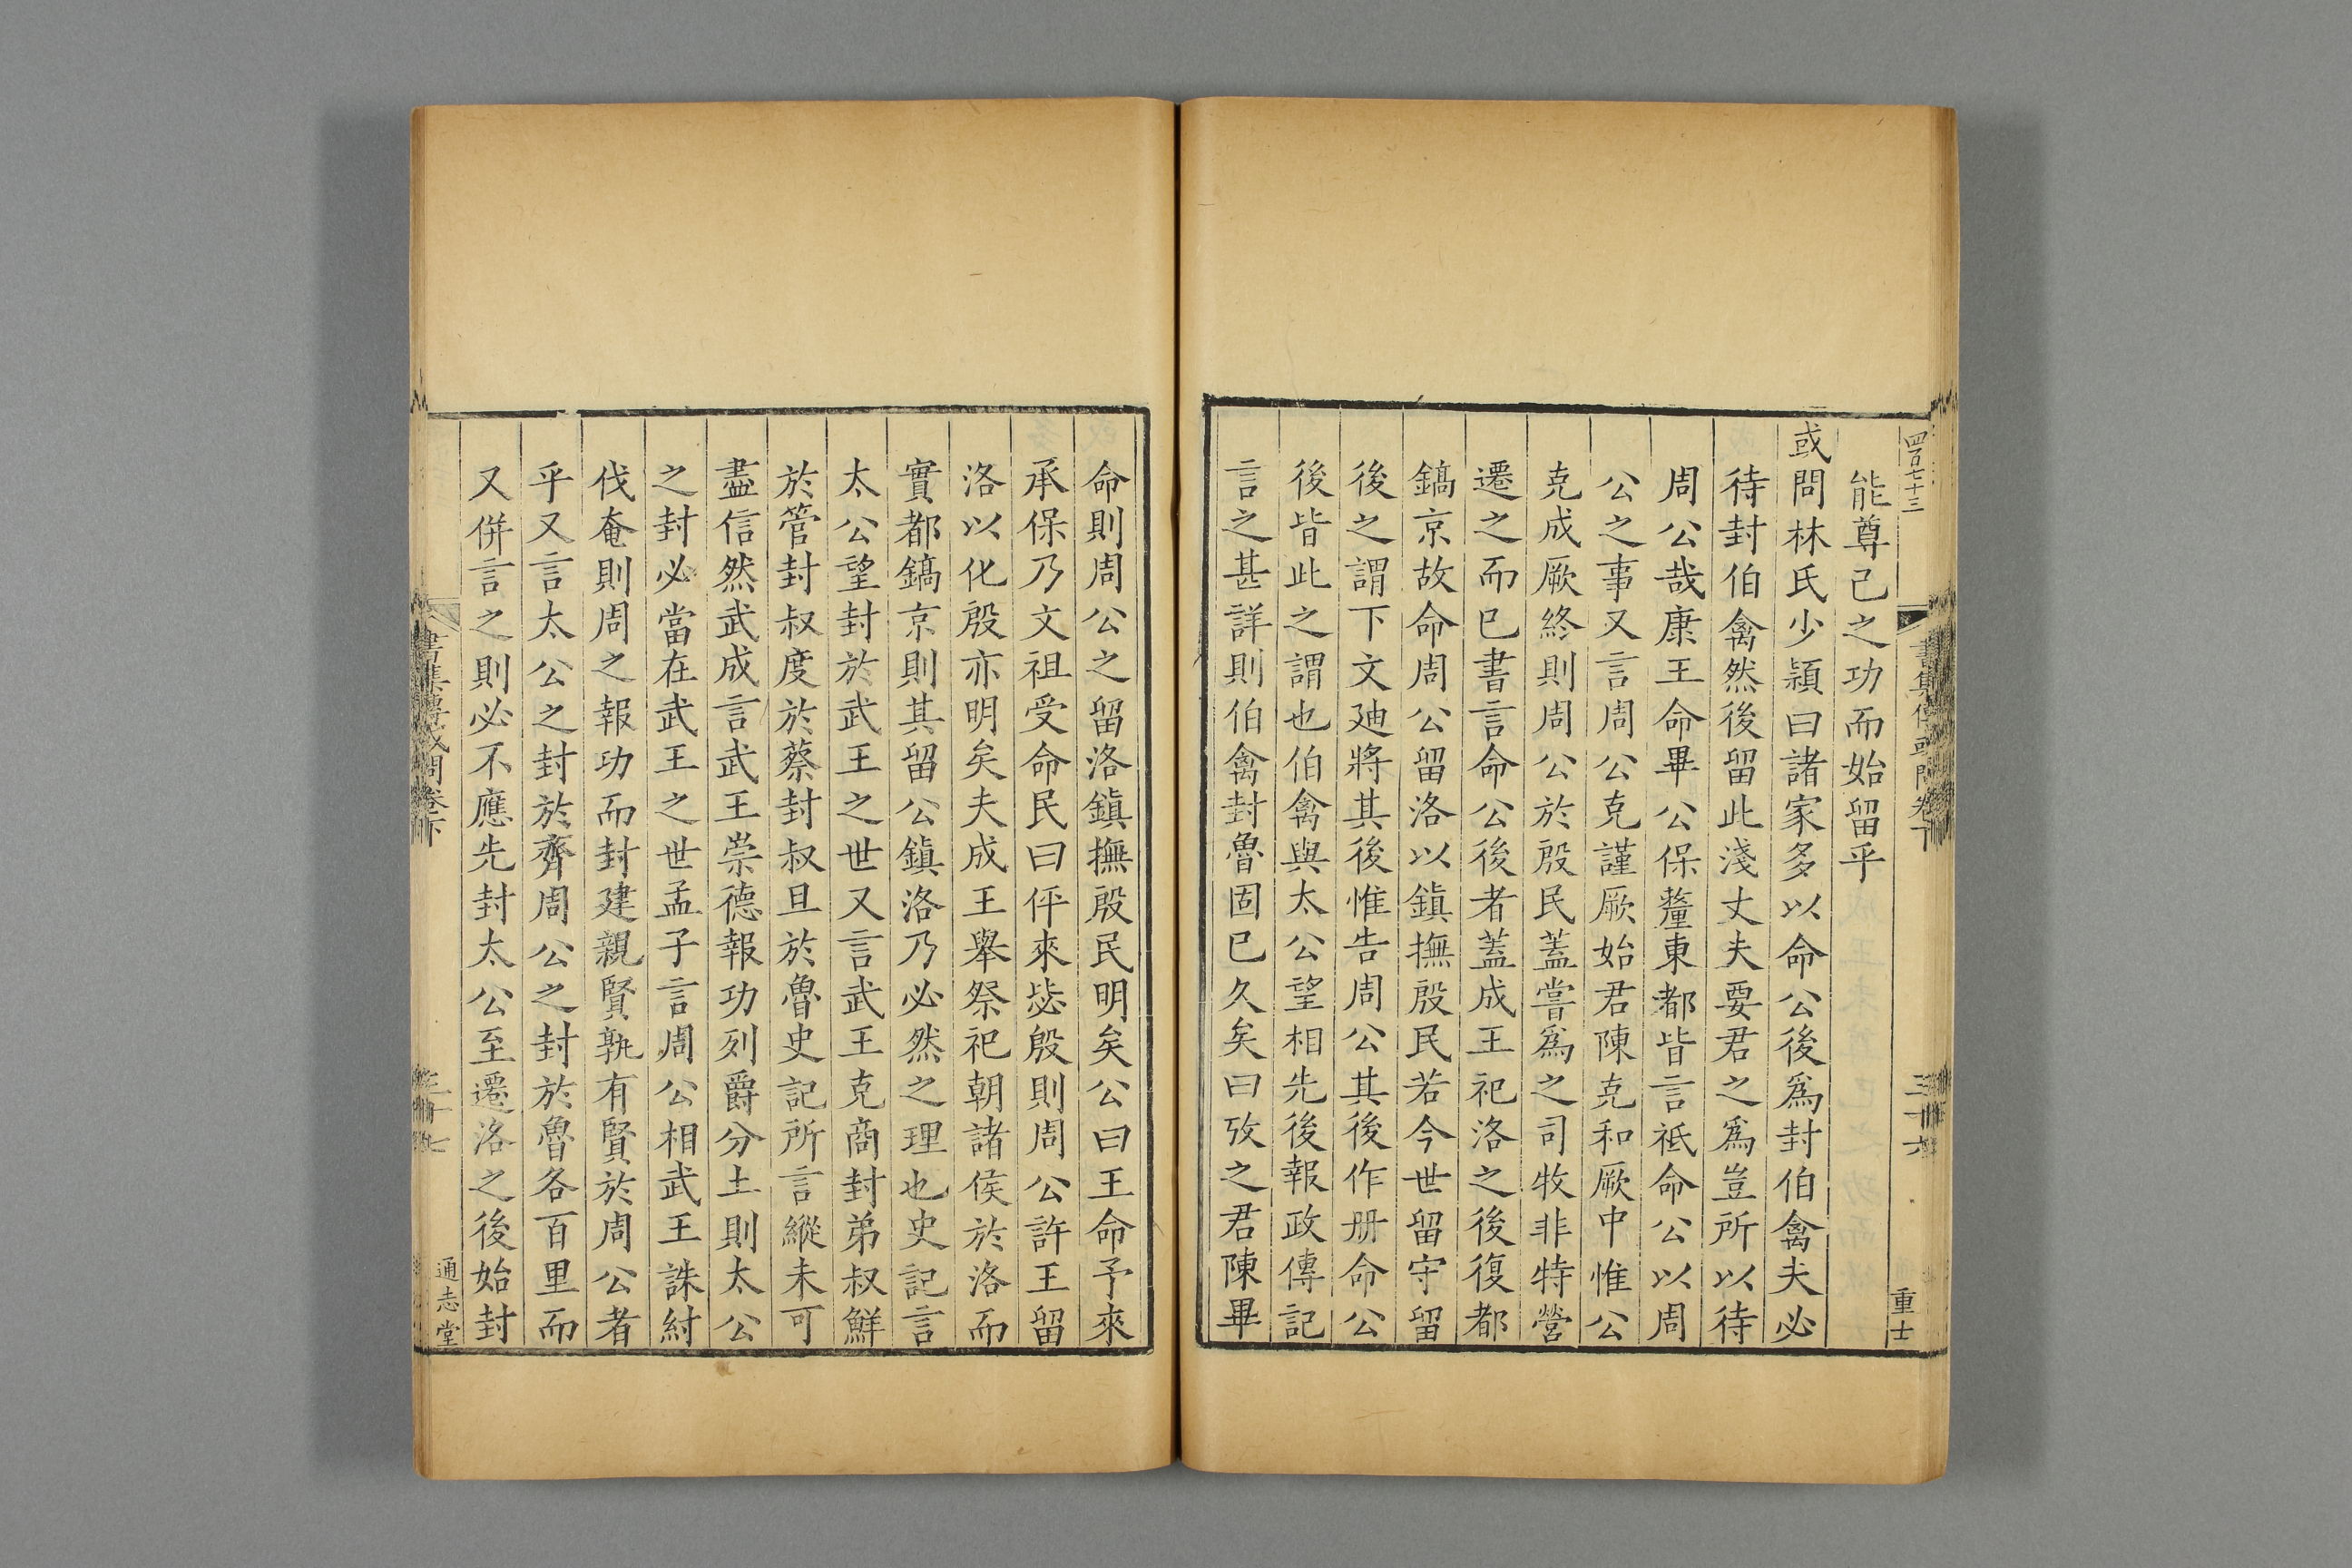 四百七十三
書集傳或問卷下
三十六
重士
能尊己之功而始留乎
或問林氏少穎曰諸家多以命公後爲封伯禽夫必
待封伯禽然後留此淺丈夫要君之爲豈所以待
周公哉康王命畢公保釐東都皆言祗命公以周
公之事又言周公克謹厥始君陳克和厥中惟公
克成厥終則周公於殷民蓋嘗爲之司牧非特營
遷之而已書言命公後者蓋成王祀洛之後復都
鎬京故命周公留洛以鎮撫殷民若今世留守留
後之謂下文廸將其後惟告周公其後作册命公
後皆此之謂也伯禽與太公望相先後報政傳記
言之甚詳則伯禽封魯固已久矣曰攷之君陳畢
命則周公之留洛鎮撫殷民明矣公曰王命予來
承保乃文祖受命民曰伻來毖殷則周公許王留
洛以化殷亦明矣夫成王舉祭祀朝諸侯於洛而
實都鎬京則其留公鎮洛乃必然之理也史記言
太公望封於武王之世又言武王克商封弟叔鮮
於管封叔度於蔡封叔旦於魯史記所言縱未可
盡信然武成言武王崇德報功列爵分土則太公
之封必當在武王之世孟子言周公相武王誅紂
伐奄則周之報功而封建親賢孰有賢於周公者
乎又言太公之封於齊周公之封於魯各百里而
又併言之則必不應先封太公至遷洛之後始封
書集傳或問卷下
三十七
通志堂